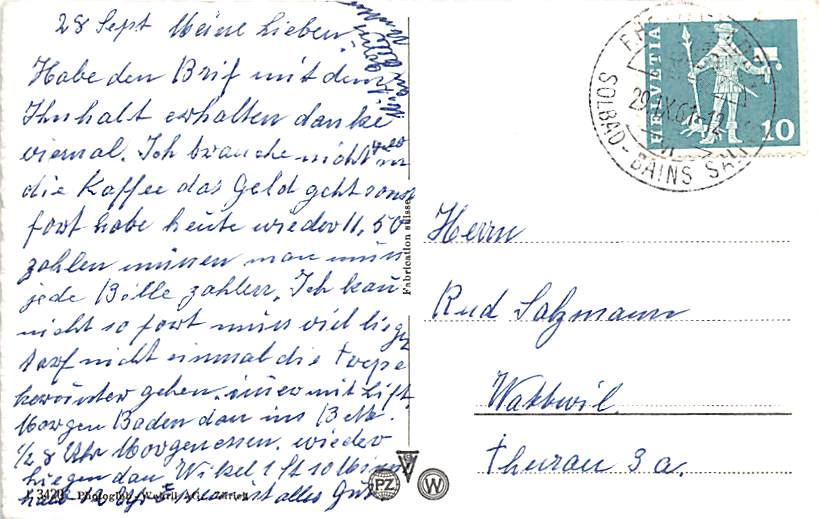 28 Sept Meine Lieben
Habe den Brif mit dem
Ihnhalt erhalten danke
viemal. Ich brauche nicht nur
die Kaffee das Geld geht sonst
fort habe heute wieder 11,50
zahlen müssen man muss
jede Bölle zahlen, Ich kan
nicht so fort muss viel liegen
darf nicht einmal die Trepe
herunter gehen. imer mit Lift.
Morgen Baden dan ins Bett.
1/2 8 Uhr Morgenessen. wieder
liegen dan Wikel 1 St 10
halb 12 Uhr Essen ist alles Gut.
K 3420 Photoglob-Wehrli AG. Zürich
Fabrication suisse
PZ W
HELVETIA
10
RHEINFELDEN
29.IX.61-12
SOLBAD-BAINS SALINS
Herrn
Rud Salzmann
Wattwil.
Thurau 3 a.